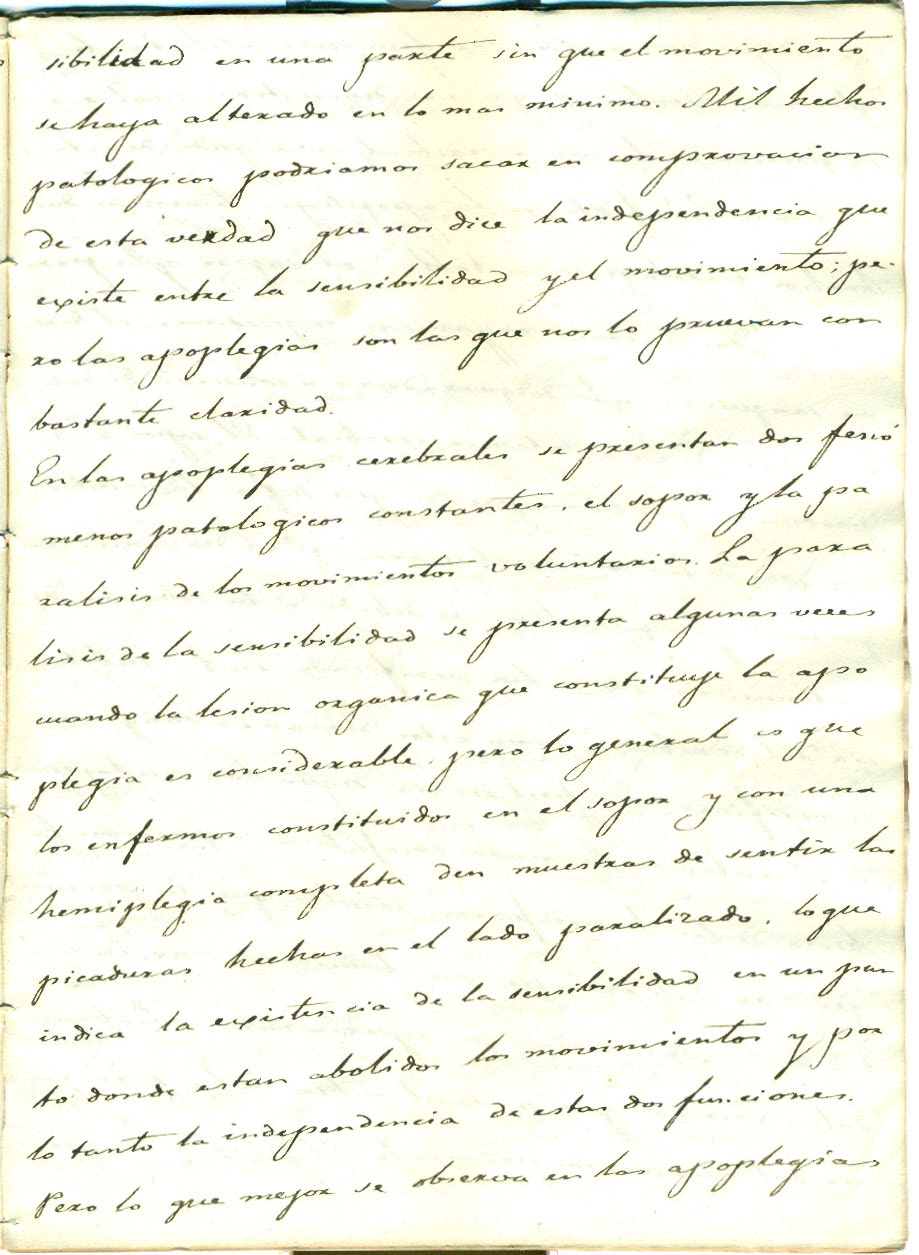 sibilidad en una parte sin que el movimiento
se haya alterado en lo mas minimo. Mil hechos
patologicos podriamos sacar en comprovacion
de esta verdad que nos dice la independencia que
existe entre la sensibilidad y el movimiento; pe-
ro las apoplegias son las que nos lo pruevan con
bastante claridad.
En las apoplegias cerebrales se presentan dos fenó
menos patologicos constantes, el sopor y la pa
ralisis de los movimientos voluntarios. La para
lisis de la sensibilidad se presenta algunas veces
cuando la lesion organica que constituye la apo
plegia es considerable, pero lo general es que
los enfermos constituidos en el sopor y con una
hemiplegia completa den muestras de sentir las
picaduras hechas en el lado paralizado, lo que
indica la existencia de la sensibilidad en un pun
to donde estan abolidos los movimientos y por
lo tanto la independencia de estas dos funciones.
Pero lo que mejor se observa en las apoplegias